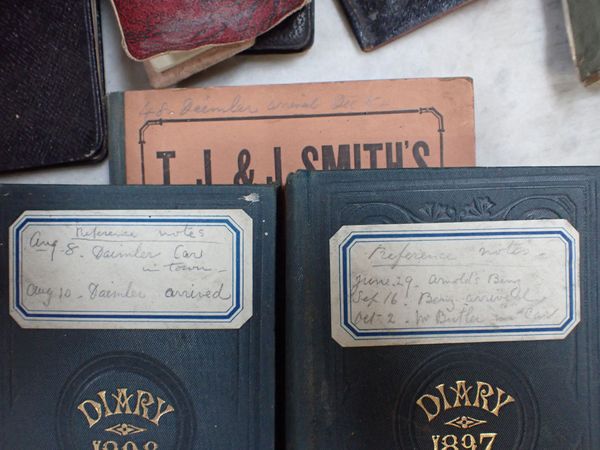 48 Daimler arrived Dec
T. J. & J. SMITH'S
Reference notes
Aug-8. Daimler Car
in Town-
Aug 10. Daimler arrived
DIARY
1898
Reference notes-
June 29. Arnold's Benz
Sep 16. Benz arrived
Oct-2. Mr Butler in Car
DIARY
1897